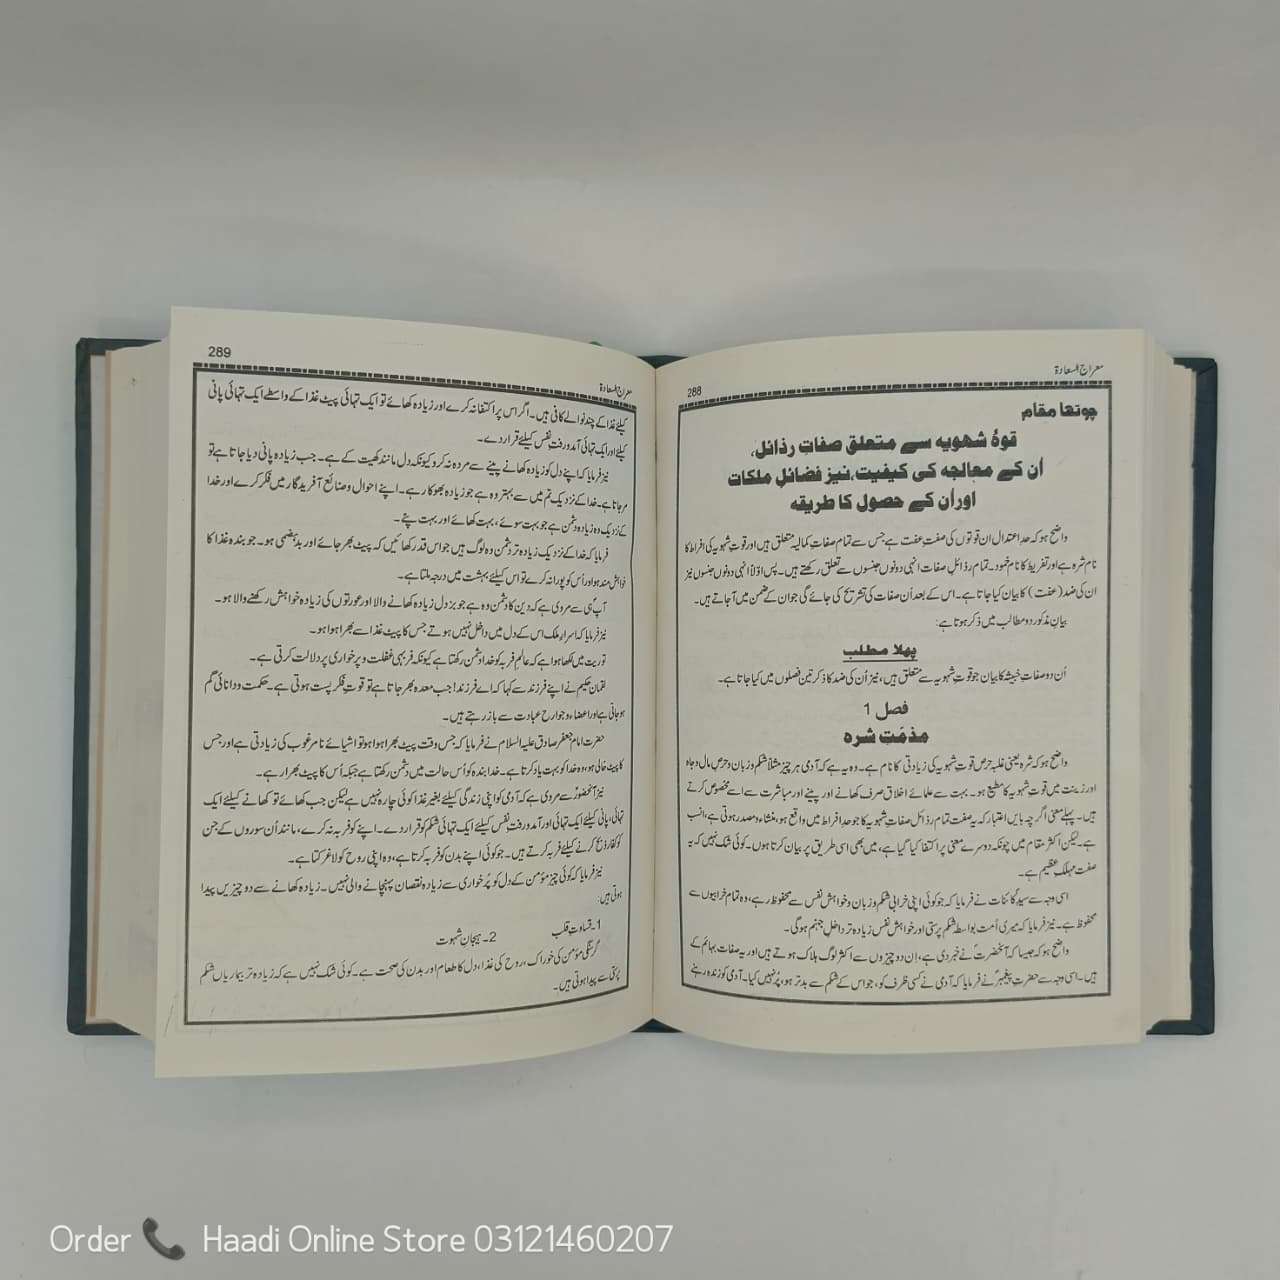 288
معراج السعادۃ
چوتھا مقام
قوۂ شھویہ سے متعلق صفاتِ رذائل،
اُن کے معالجہ کی کیفیت،نیز فضائلِ ملکات
اوراُن کے حصول کا طریقہ
واضح ہو کہ حدِ اعتدال ان قوتوں کی صفتِ عفت ہے جس سے تمام صفاتِ کمالیہ متعلق ہیں اور قوتِ شہویہ کی افراط کا
نام شرہ ہے اور تفریط کا نام خمود۔ تمام رذائل صفات انہی دونوں جنسوں سے تعلق رکھتے ہیں۔ پس اوّلاً انہی دونوں جنسوں نیز
ان کی ضد (عفت) کا بیان کیا جاتا ہے۔ اس کے بعد اُن صفات کی تشریح کی جائے گی جو ان کے ضمن میں آجاتے ہیں۔
بیانِ مذکور دو مطالب میں ذکر ہوتا ہے:
پھلا مطلب
اُن دو صفاتِ خبیثہ کا بیان جو قوتِ شہویہ سے متعلق ہیں، نیز اُن کی ضد کا ذکر تین فصلوں میں کیا جاتا ہے۔
فصل 1
مذمّت شرہ
واضح ہو کہ شرہ یعنی غلبہ حرص قوتِ شہویہ کی زیادتی کا نام ہے۔ وہ یہ ہے کہ آدمی ہر چیز مثلاً شکم و زبان و حرصِ مال و جاہ
اور زینت میں قوتِ شہویہ کا مطیع ہو۔ بہت سے علمائے اخلاق صرف کھانے اور پینے اور مباشرت سے اسے مخصوص کرتے
ہیں۔ پہلے معنی اگرچہ بایں اعتبار کہ یہ صفت تمام رذائل صفاتِ شہویہ کا جو حدِ افراط میں واقع ہو، منشاء و مصدر ہوتی ہے، انسب
ہے۔ لیکن اکثر مقام میں چونکہ دوسرے معنی پر اکتفا کیا گیا ہے، میں بھی اسی طریق پر بیان کرتا ہوں۔ کوئی شک نہیں کہ یہ
صفت مہلکِ عظیم ہے۔
اسی وجہ سے سیدِ کائنات نے فرمایا کہ جو کوئی اپنی خرابیِ شکم و زبان و خواہش نفس سے محفوظ رہے، وہ تمام خرابیوں سے
محفوظ ہے۔ نیز فرمایا کہ میری اُمت بواسطہ شکم پرستی اور خواہش نفس زیادہ تر داخلِ جہنم ہوگی۔
واضح ہو کہ جیسا کہ آنحضرتؐ نے خبر دی ہے، اِن دو چیزوں سے اکثر لوگ ہلاک ہوتے ہیں اور یہ صفات بہائم کے
ہیں۔ اسی وجہ سے حضرت پیغمبرؐ نے فرمایا کہ آدمی نے کسی ظرف کو، جو اس کے شکم سے بدتر ہو، پُر نہیں کیا۔ آدمی کو زندہ رہنے
289
معراج السعادۃ
کیلئے غذا کے چند نوالے کافی ہیں۔ اگر اس پر اکتفا نہ کرے اور زیادہ کھائے تو ایک تہائی پیٹ غذا کے واسطے ایک تہائی پانی
کیلئے اور ایک تہائی آمد و رفت نفس کیلئے قرار دے۔
نیز فرمایا کہ اپنے دل کو زیادہ کھانے پینے سے مردہ نہ کرو کیونکہ دل مانند کھیت کے ہے۔ جب زیادہ پانی دیا جاتا ہے تو
مر جاتا ہے۔ خدا کے نزدیک تم میں سے بہتر وہ ہے جو زیادہ بھوکا رہے۔ اپنے احوال و صنائع آفریدگار میں فکر کرے اور خدا
کے نزدیک وہ زیادہ دشمن ہے جو بہت سوئے، بہت کھائے اور بہت پئے۔
فرمایا کہ خدا کے نزدیک زیادہ تر دشمن وہ لوگ ہیں جو اس قدر کھائیں کہ پیٹ بھر جائے اور بدہضمی ہو۔ جو بندہ غذا کا
خواہش مند ہو اور اُس کو پورا نہ کرے تو اس کیلئے بہشت میں درجہ ملتا ہے۔
آپؐ ہی سے مروی ہے کہ دین کا دشمن وہ ہے جو بزدل زیادہ کھانے والا اور عورتوں کی زیادہ خواہش رکھنے والا ہو۔
نیز فرمایا کہ اسرارِ ملک اس کے دل میں داخل نہیں ہوتے جس کا پیٹ غذا سے بھرا ہوا ہو۔
توریت میں لکھا ہوا ہے کہ عالمِ فربہ کو خدا دشمن رکھتا ہے کیونکہ فربہی غفلت و پرخواری پر دلالت کرتی ہے۔
لقمان حکیم نے اپنے فرزند سے کہا کہ اے فرزند! جب معدہ بھر جاتا ہے تو قوتِ فکر پست ہوتی ہے۔ حکمت و دانائی گم
ہو جاتی ہے اور اعضاء و جوارح عبادت سے باز رہتے ہیں۔
حضرت امام جعفر صادق علیہ السلام نے فرمایا کہ جس وقت پیٹ بھرا ہوا ہو تو اشیائے نا مرغوب کی زیادتی ہے اور جس
کا پیٹ خالی ہو، وہ خدا کو بہت یاد کرتا ہے۔ خدا بندہ کو اُس حالت میں دشمن رکھتا ہے جبکہ اُس کا پیٹ بھرا رہے۔
نیز آنحضورؐ سے مروی ہے کہ آدمی کو اپنی زندگی کیلئے بغیر غذا کوئی چارہ نہیں ہے لیکن جب کھائے تو کھانے کیلئے ایک
تہائی، پانی کیلئے ایک تہائی اور آمد و رفتِ نفس کیلئے ایک تہائی شکم کو قرار دے۔ اپنے کو فربہ نہ کرے، مانند اُن سوروں کے جن
کو کفار ذبح کرنے کیلئے فربہ کرتے ہیں۔ جو کوئی اپنے بدن کو فربہ کرتا ہے، وہ اپنی روح کو لاغر کرتا ہے۔
نیز فرمایا کہ کوئی چیز مؤمن کے دل کو پُرخواری سے زیادہ نقصان پہنچانے والی نہیں۔ زیادہ کھانے سے دو چیزیں پیدا
ہوتی ہیں:
1۔ قساوتِ قلب 2۔ ہیجانِ شہوت
گرسنگی مؤمن کی خوراک، روح کی غذا، دل کا طعام اور بدن کی صحت ہے۔ کوئی شک نہیں ہے کہ زیادہ تر بیماریاں شکم
پُرتی سے پیدا ہوتی ہیں۔
Order Haadi Online Store 03121460207